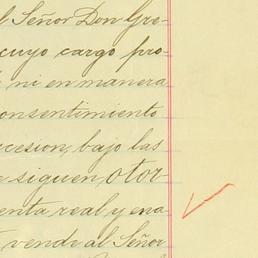 l Señor Don Gre-
cuyo cargo pro-
ni en manera
onsentimiento
cesion, bajo las
e siguen, otor-
enta real y ena
vende al Señor